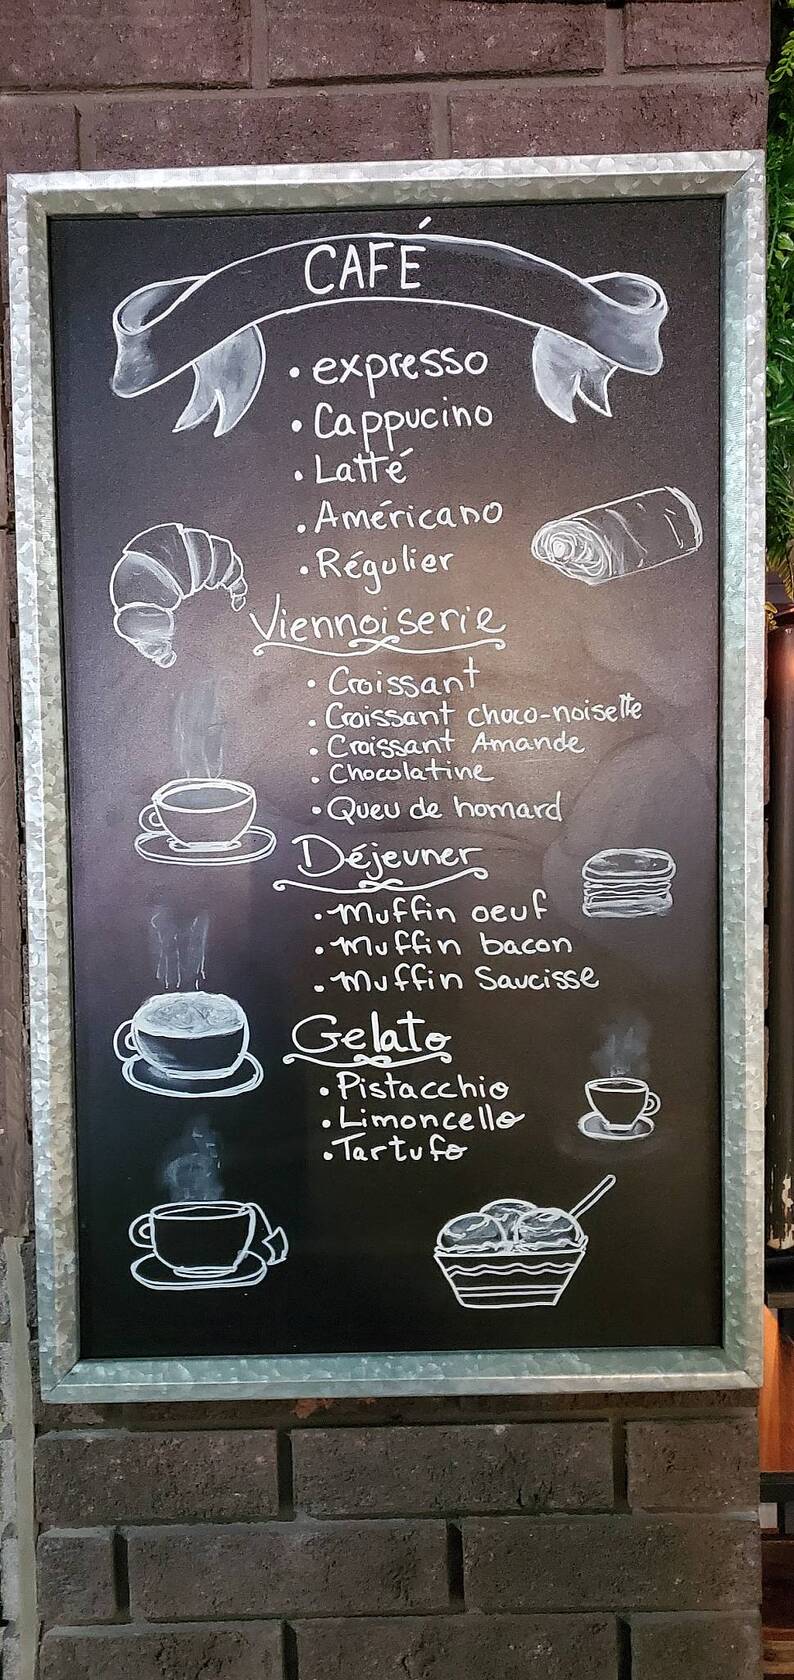 CAFÉ
• expresso
• Cappucino
• Latté
• Américano
• Régulier
Viennoiserie
• Croissant
• Croissant choco-noisette
• Croissant Amande
• Chocolatine
• Queu de homard
Déjeuner
• Muffin oeuf
• Muffin bacon
• Muffin Saucisse
Gelato
• Pistacchio
• Limoncello
• Tartufo